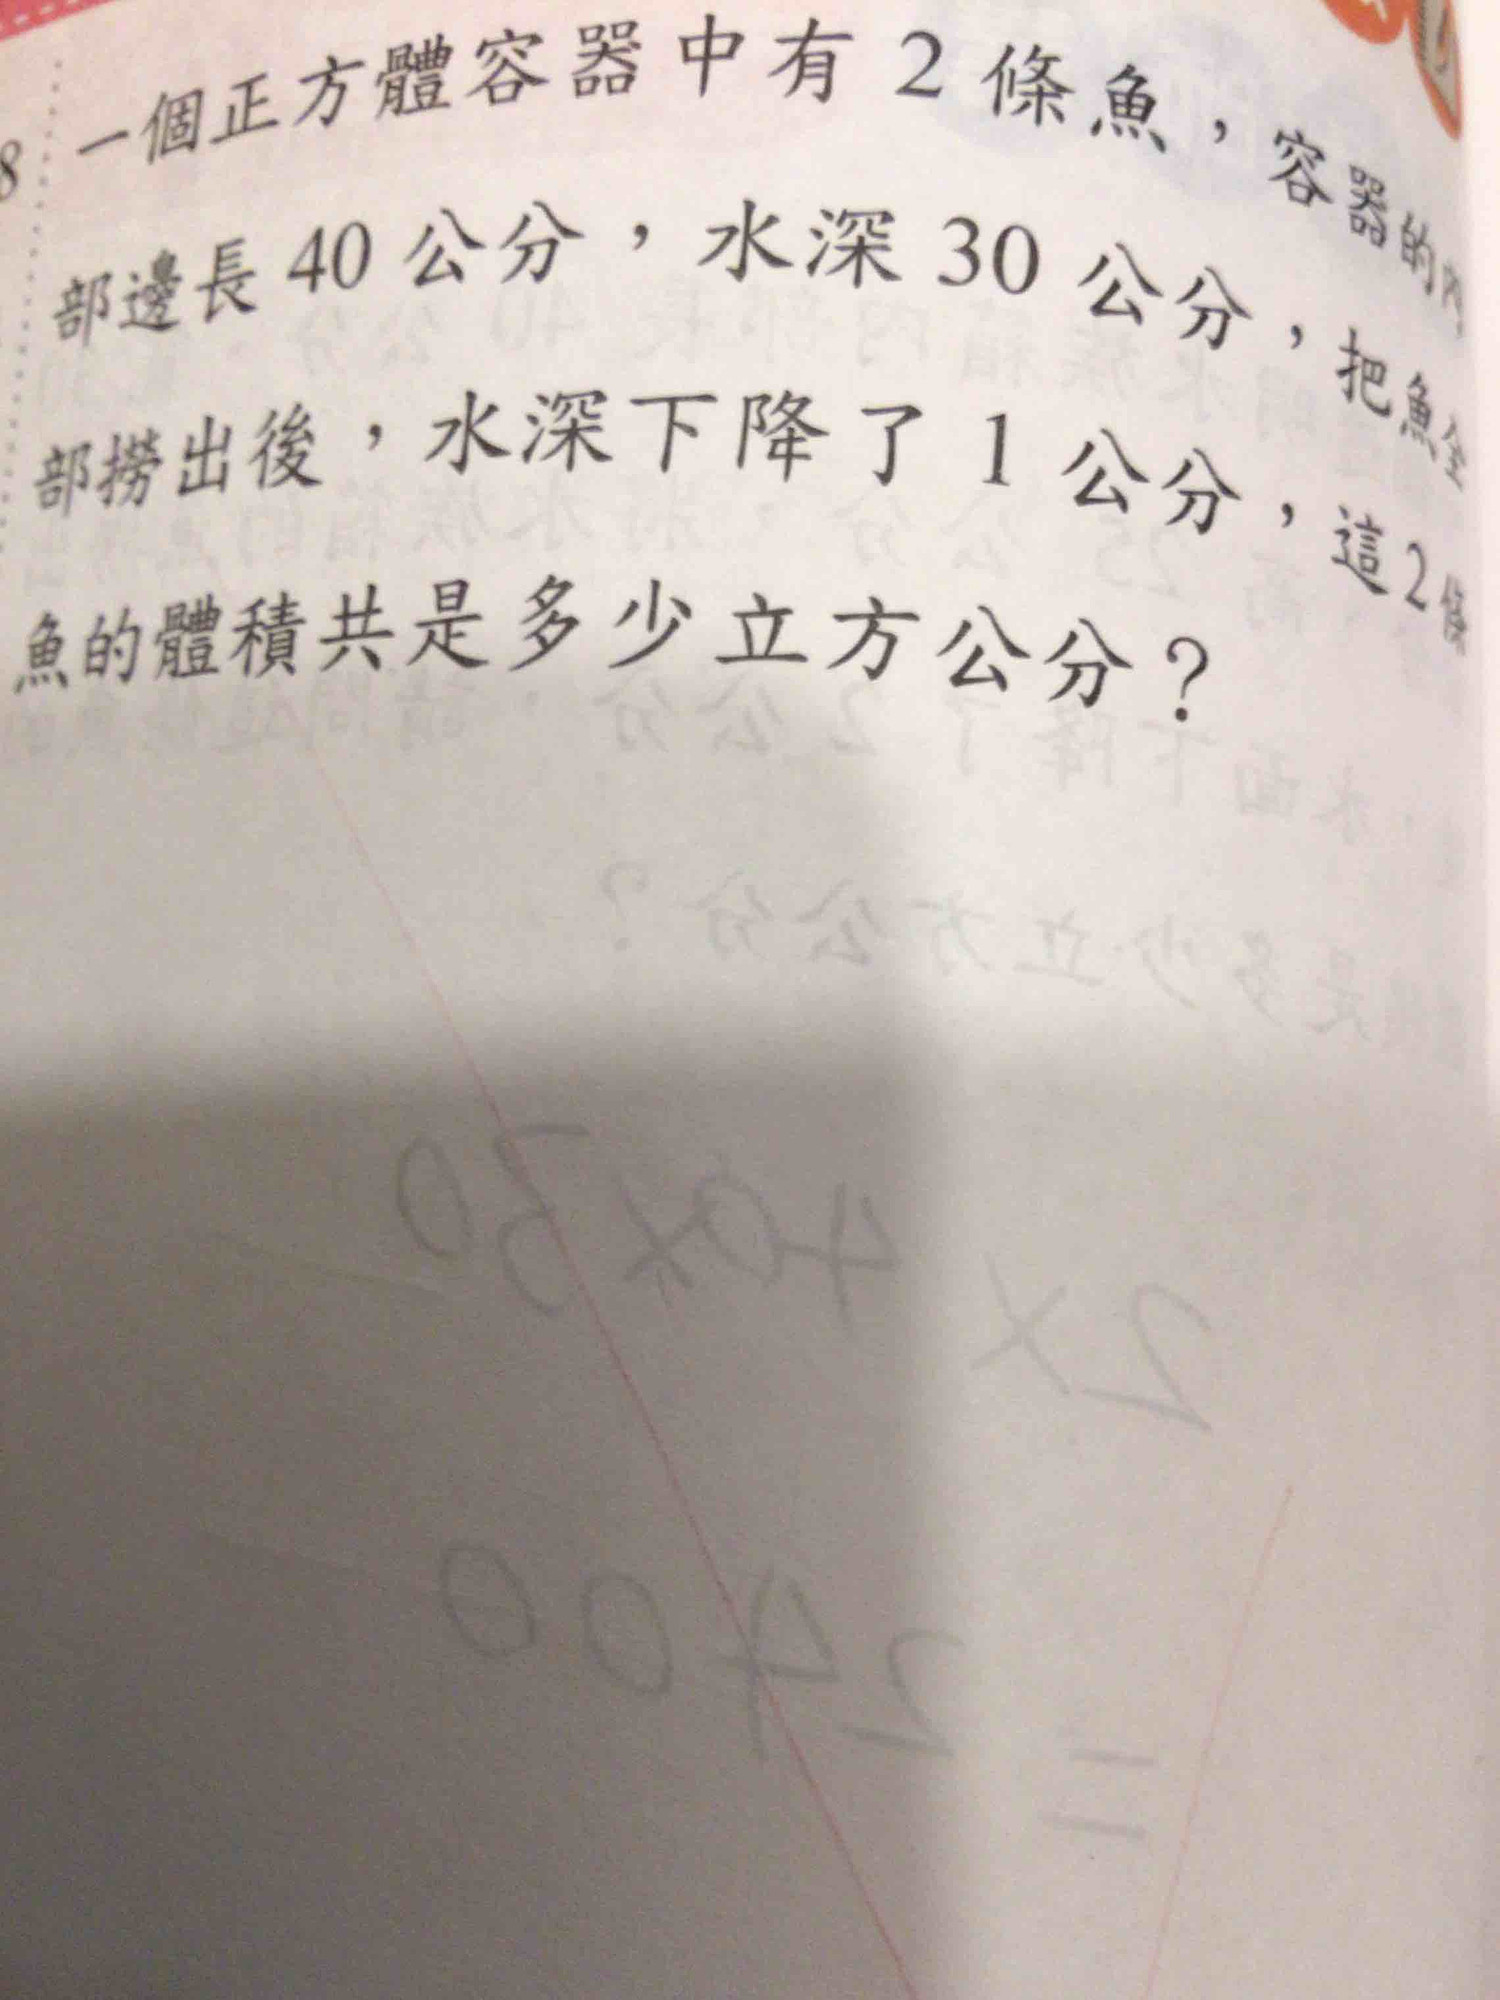 8 一個正方體容器中有 2 條魚，容器的內
部邊長 40 公分，水深 30 公分，把魚全
部撈出後，水深下降了 1 公分，這 2 條
魚的體積共是多少立方公分？